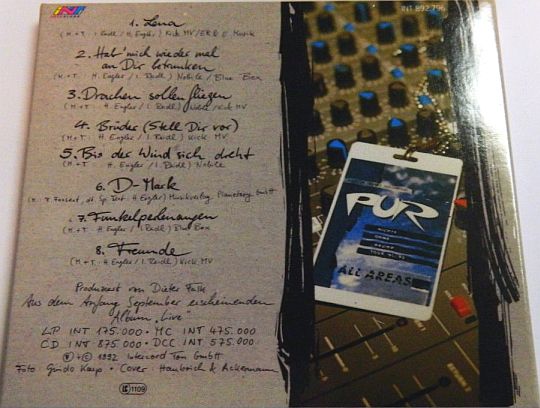 INT 892.796
1. Lena
(M.+T.: H. Engler / I. Reidl) Kick MV / ER & E Musik
2. Hab' mich wieder mal
an Dir betrunken
(M.+T.: H. Engler / I. Reidl) Nobile / Blue Box
3. Drachen sollen fliegen
(M.+T.: H. Engler / I. Reidl) Nobile / Kick MV
4. Brüder (Stell Dir vor)
(M.+T.: H. Engler / I. Reidl) Kick MV
5. Bis der Wind sich dreht
(M.+T.: H. Engler / I. Reidl) Nobile
6. D-Mark
H. Engler) Musikverlag Planetary GmbH
7. Funkelperlenaugen
(M.+T.: H. Engler / I. Reidl) Blue Box
8. Freunde
(M.+T.: H. Engler / I. Reidl) Kick MV
Produziert von Dieter Falk
Aus dem Anfang September erscheinenden
Album „Live"
LP INT 175.000 · MC INT 475.000
CD INT 875.000 · DCC INT 575.000
℗ + © 1992 Intercord Ton GmbH
Foto: Guido Karp · Cover: Haubrich & Ackermann
LC 1109
PUR
ALL AREAS